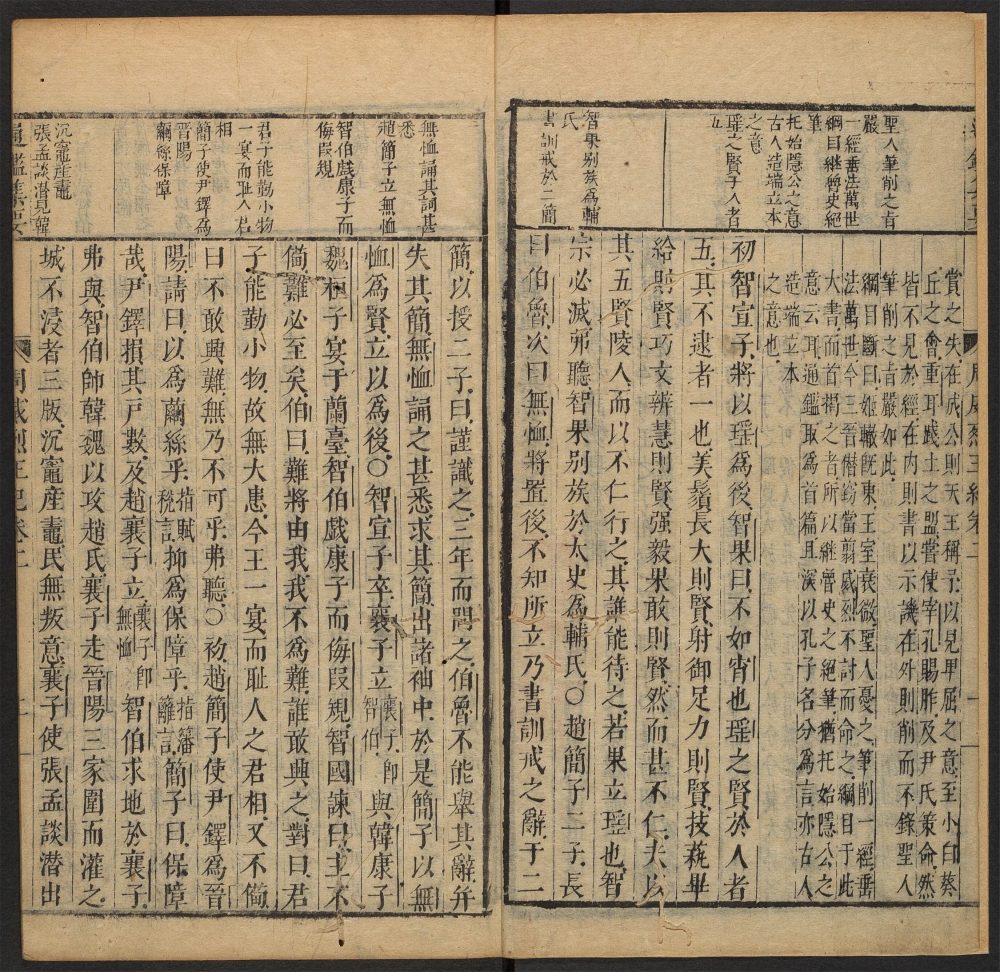 聖人筆削之旨
嚴
一經垂法萬世
綱目繼魯史絕
筆
托始隱公之意
古人造端立本
之意
瑤之賢于人者
五
智果別族為輔
氏
書訓戒於二簡
賞之失在成公則天王稱子以見卑屈之意至小卬蔡
丘之會重耳踐土之盟嘗使宰孔賜胙及尹氏策命然
皆不見於經在內則書以示譏在外則削而不錄聖人
筆削之旨嚴如此
綱目斷曰姬轍旣東王室衰微聖人憂之筆削一經垂
法萬世今三晉僭竊當翦威烈不討而命之綱目于此
大書而首揭之者所以繼魯史之絕筆猶托始隱公之
意云耳通鑑取為首篇且演以孔子名分為言亦古人
造端立本
之意也
初智宣子將以瑤為後智果曰不如宵也瑤之賢於人者
五其不逮者一也美鬚長大則賢射御足力則賢技藝畢
給則賢巧文辨慧則賢强毅果敢則賢然而甚不仁夫以
其五賢陵人而以不仁行之其誰能待之若果立瑤也智
宗必滅弗聽智果別族於太史為輔氏〇趙簡子二子長
曰伯魯次曰無恤將置後不知所立乃書訓戒之辭于二
無恤誦其詞甚
悉
趙簡子立無恤
智伯戲康子而
侮叚規
君子能勤小物
一宴而耻人君
相
簡子使尹鐸為
晉陽
繭絲保障
沉竈產鼃
張孟談潛見韓
簡以授二子曰謹識之三年而問之伯魯不能舉其辭并
失其簡無恤誦之甚悉求其簡出諸袖中於是簡子以無
恤為賢立以為後〇智宣子卒襄子立襄子即智伯與韓康子
魏桓子宴于蘭臺智伯戲康子而侮叚規智國諫曰主不
備難必至矣伯曰難將由我我不為難誰敢興之對曰君
子能勤小物故無大患今主一宴而耻人之君相又不備
曰不敢興難無乃不可乎弗聽〇初趙簡子使尹鐸為晉
陽請曰以為繭絲乎指賦稅言抑為保障乎指藩籬言簡子曰保障
哉尹鐸損其戶數及趙襄子立襄子即無恤智伯求地於襄子
弗與智伯師韓魏以攻趙氏襄子走晉陽三家圍而灌之
城不浸者三版沉竈產鼃民無叛意襄子使張孟談潛出